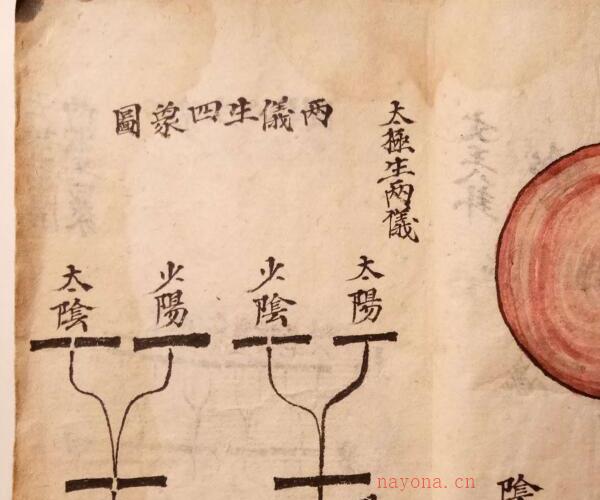 太極生兩儀
两儀生四象圖
太陽
少陰
少陽
太陰
陰
nayona.cn